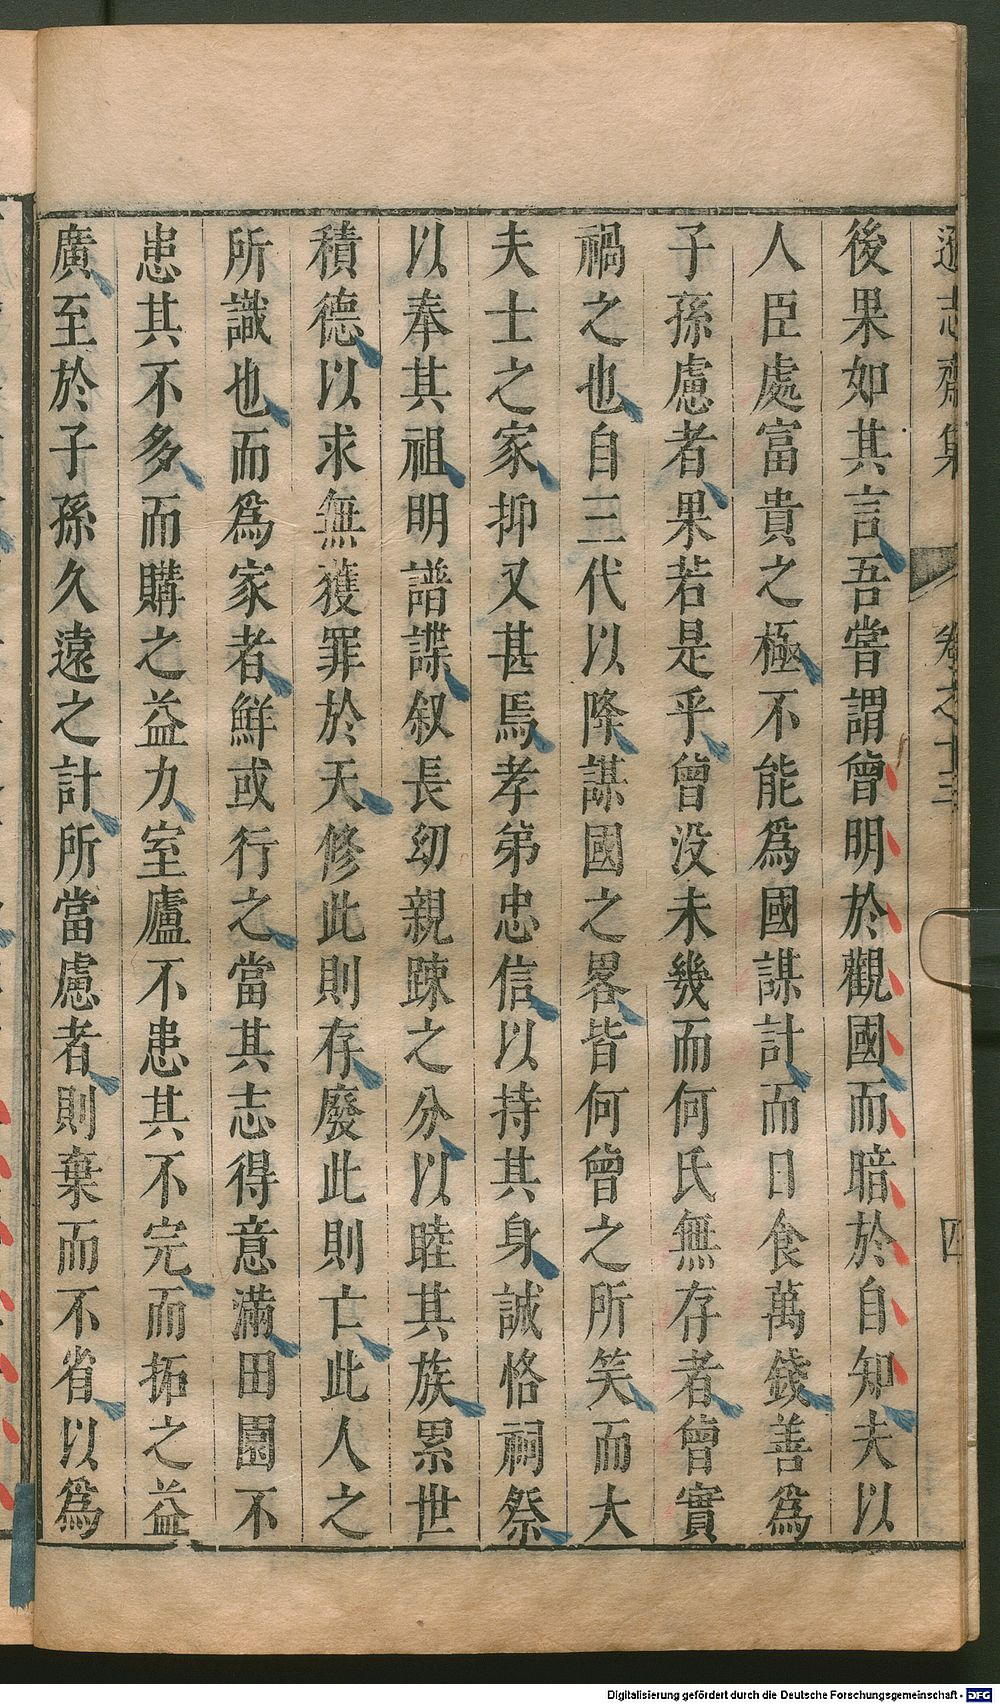 遜志齋集 卷之十三 四
後果如其言吾嘗謂曾明於觀國而暗於自知夫以
人臣處富貴之極不能為國謀計而日食萬錢善為
子孫慮者果若是乎曾没未幾而何氏無存者曾實
禍之也自三代以降謀國之畧皆何曾之所笑而大
夫士之家抑又甚焉孝弟忠信以持其身誠恪祠祭
以奉其祖明譜諜叙長幼親踈之分以睦其族累世
積德以求無獲罪於天修此則存廢此則亡此人之
所識也而為家者鮮或行之當其志得意滿田園不
患其不多而購之益力室廬不患其不完而拓之益
廣至於子孫久遠之計所當慮者則棄而不省以為
Digitalisierung gefördert durch die Deutsche Forschungsgemeinschaft - DFG